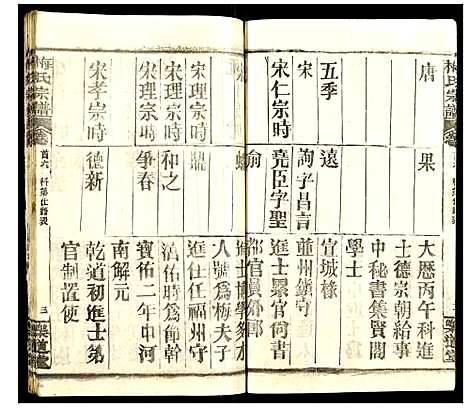 梅氏宗譜
唐
果
大曆丙午科進
士德宗朝給事
中秘書集賢閣
學士
五季
遠
宣城掾
宋
詢子昌言
並州鎮守
宋仁宗時
堯臣字聖
俞
進士累官尚書
都官員外郎
人號為梅夫子
宋理宗時
鼎
進仕任福州守
宋理宗時
和之
淳佑時爲節
宋理宗時
爭春
寶佑二年中河
南解元
宋孝宗時
德新
乾道初進士第
官制置使
梅氏宗譜
卷
首六
科第仕籍錄
三
樂道堂